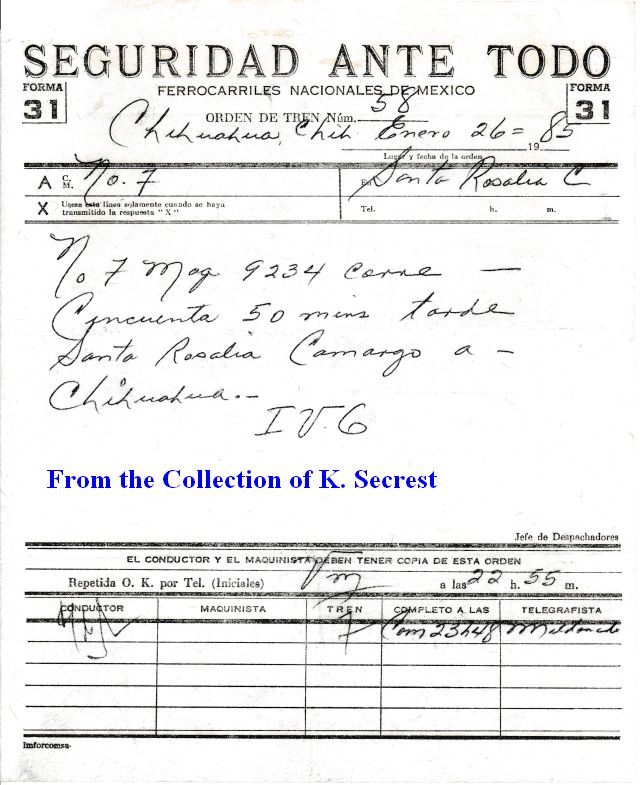 SEGURIDAD ANTE TODO
FORMA 31
FERROCARRILES NACIONALES DE MEXICO
FORMA 31
ORDEN DE TREN Núm. 58
Chihuahua, Chih Enero 26= 1985
Lugar y fecha de la orden
A C. M. No. 7
En Santa Rosalia C
X Usese esta linea solamente cuando se haya transmitido la respuesta "X"
Tel. h. m.
No 7 Maq 9234 corre —
Cincuenta 50 mins tarde
Santa Rosalia Camargo a —
Chihuahua.-
I V. G
From the Collection of K. Secrest
Jefe de Despachadores
EL CONDUCTOR Y EL MAQUINISTA DEBEN TENER COPIA DE ESTA ORDEN
Repetida O. K. por Tel. (Iniciales) a las 22 h. 55 m.
CONDUCTOR MAQUINISTA TREN COMPLETO A LAS TELEGRAFISTA
7 Com 23h48 Maldonado
Imforcomsa-